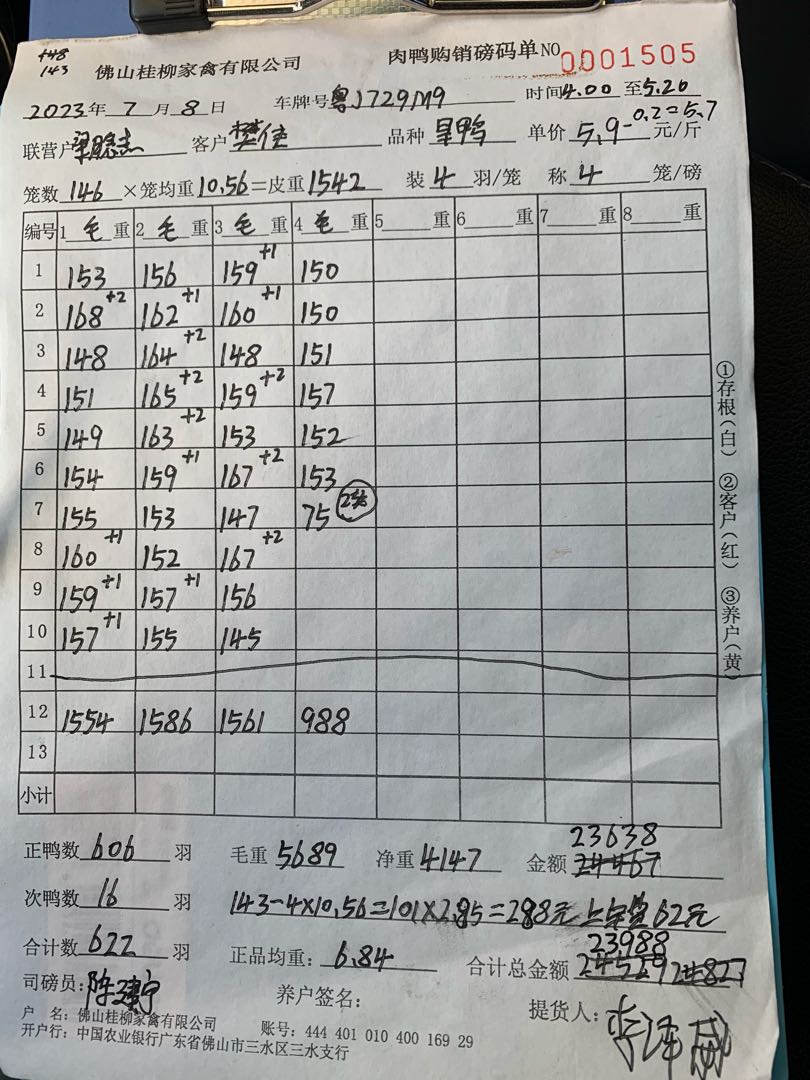 +48
143
佛山桂柳家禽有限公司 肉鸭购销磅码单 NO 0001505
2023年 7 月 8 日 车牌号 粤J729M9 时间 4.00 至 5.20
联营户 客户 樊佳 品种 单价 5.9-0.2=5.7 元/斤
笼数 146 ×笼均重 10.56 =皮重 1542 装 4 羽/笼 称 4 笼/磅
编号 1 毛 重 2 毛 重 3 毛 重 4 毛 重 5 重 6 重 7 重 8 重
1 153 156 159+1 150
2 168+2 162+1 160+1 150
3 148 164+2 148 151
4 151 165+2 159+2 157
5 149 163+2 153 152
6 154 159+1 167+2 153
7 155 153 147 75
8 160+1 152 167+2
9 159+1 157+1 156
10 157+1 155 145
11
12 1554 1586 1561 988
13
小计
23638
正鸭数 606 羽 毛重 5689 净重 4147 金额 24467
次鸭数 16 羽 143-4×10.56=101×2.85=288元 62元
23988
合计数 622 羽 正品均重: 6.84 合计总金额
司磅员: 养户签名: 提货人:
户 名: 佛山桂柳家禽有限公司 账号: 444 401 010 400 169 29
开户行: 中国农业银行广东省佛山市三水区三水支行
①存根(白) ②客户(红) ③养户(黄)